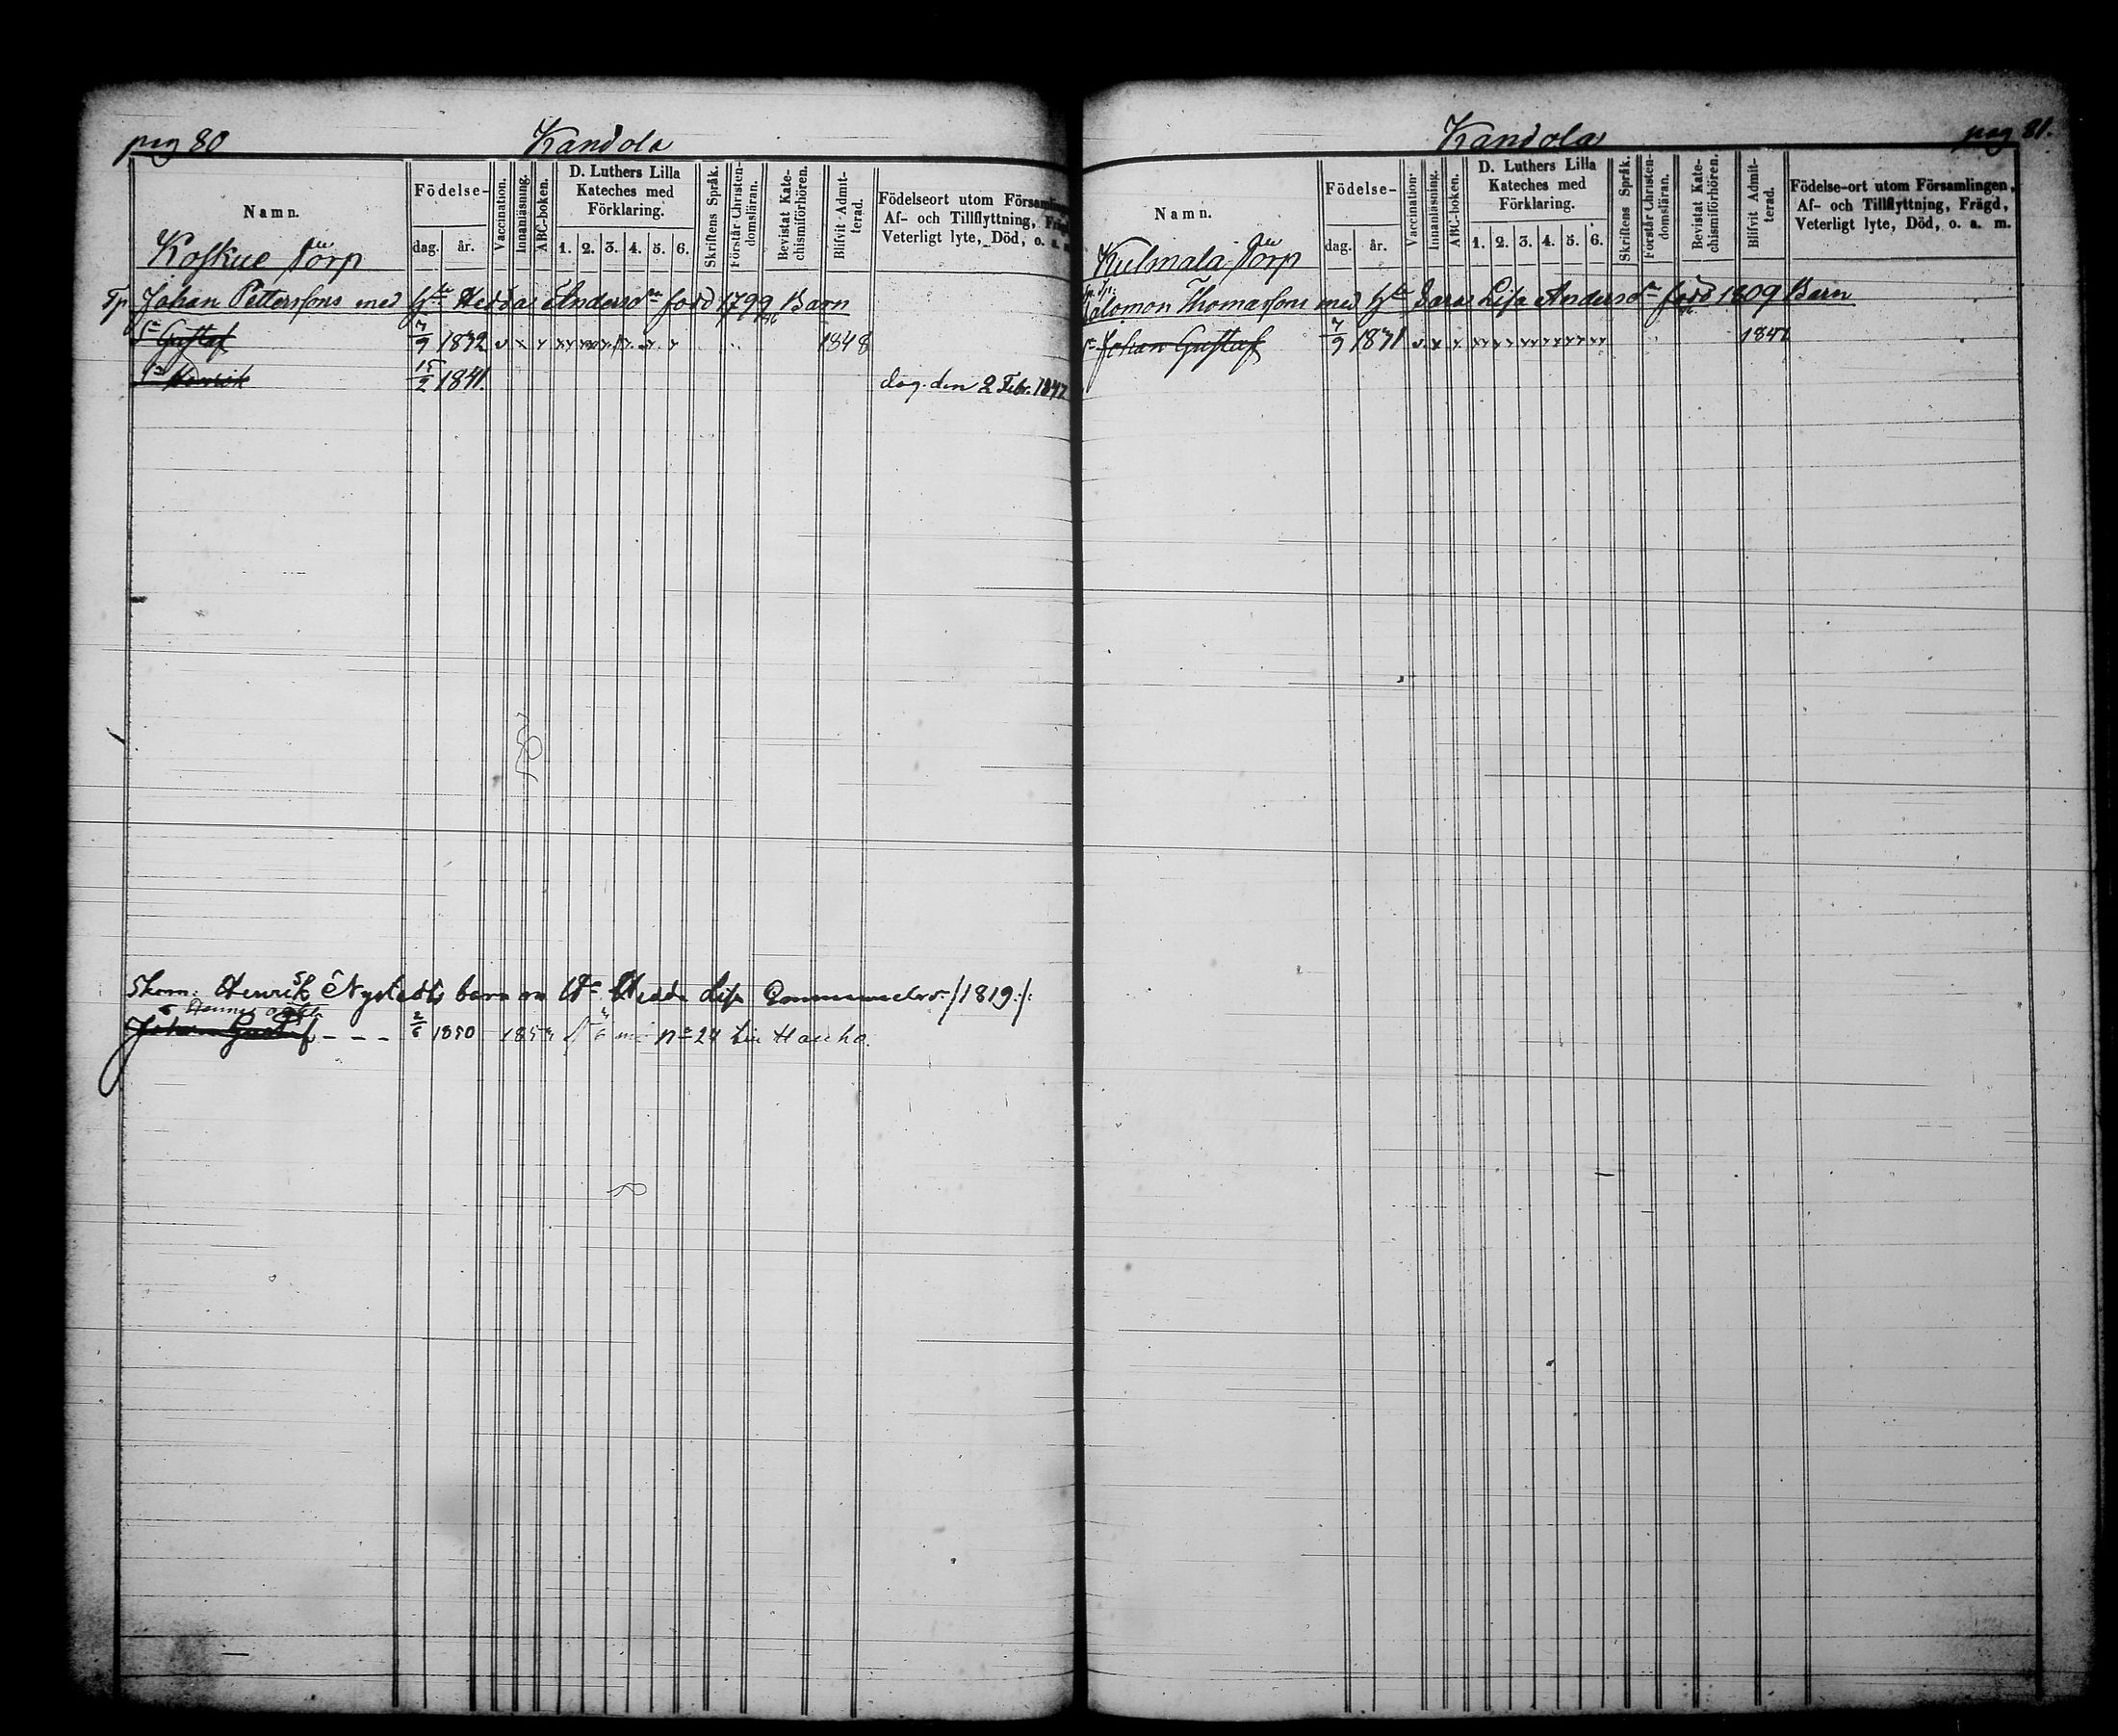 pag 80
Kandola
Namn.
Födelse-
dag.
år.
Vaccination.
Innanläsning.
ABC-boken.
D. Luthers Lilla
Kateches med
Förklaring.
1. 2. 3. 4. 5. 6.
Skriftens Språk.
Förstår Christen-
domsläran.
Bevistat Kate-
chismiförhören.
Blifvit Admit-
terad.
Födelseort utom Försam
Af- och Tillflyttning,
Veterligt lyte, Död, o. a.
Koskue Torp
Tp. Johan Pettersfons med H Hedda Andersd. född 1799 Barn
Gustaf 7/9 1832 1848
Henrik 15/2 1841. dog den 2 Febr. 1842
Skom: Henrik Nystedts barn m Hedda Lisa 1819
Johan Gustaf - - - 2/6 1850 n 24 Hauho.
pag 81.
Kandola
Namn.
Födelse-
dag.
år.
Vaccination.
Innanläsning.
ABC-boken.
D. Luthers Lilla
Kateches med
Förklaring.
1. 2. 3. 4. 5. 6.
Skriftens Språk.
Förstår Christen-
domsläran.
Bevistat Kate-
chismiförhören.
Blifvit Admit-
terad.
Födelse-ort utom Församlingen,
Af- och Tillflyttning, Frägd,
Veterligt lyte, Död, o. a. m.
Kulmala Torp
Salomon Thomasfons med H Lisa Andersd. född 1809 Barn
Johan Gustaf 7/9 1831 1847